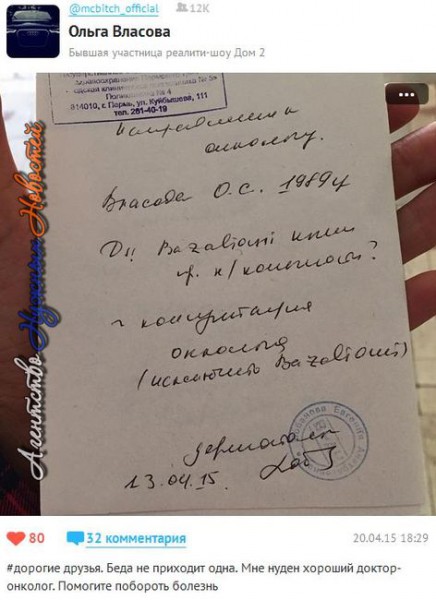 @mcbitch_official 12K
Ольга Власова
Бывшая участница реалити-шоу Дом 2
Поликлиника № 4
614010, г. Пермь, ул. Куйбышева, 111
тел. 281-40-19
Направление к
онкологу.
Власова О.С. 1989г
Ds: Bazaliomi кожи
н/конечности?
консультация
онколога
(исключить Bazaliomi)
дерматолог
13.04.15.
Агентство Нужных Новостей
80
32 комментария
20.04.15 18:29
#дорогие друзья. Беда не приходит одна. Мне нуден хороший доктор-
онколог. Помогите побороть болезнь